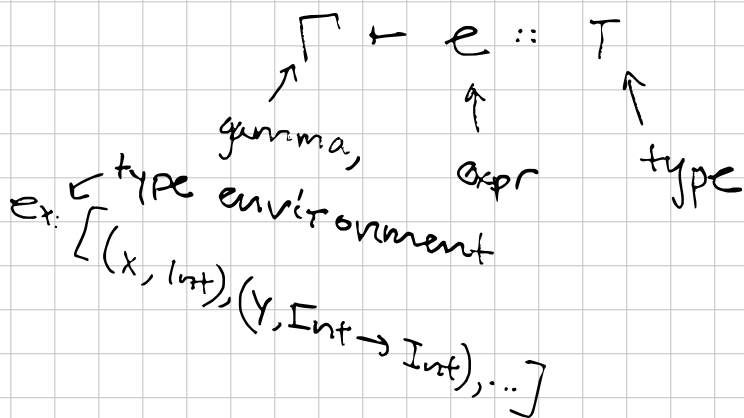 Γ ⊢ e :: T
gamma,
type environment
expr
type
ex: [(x, Int), (Y, Int → Int), ...]